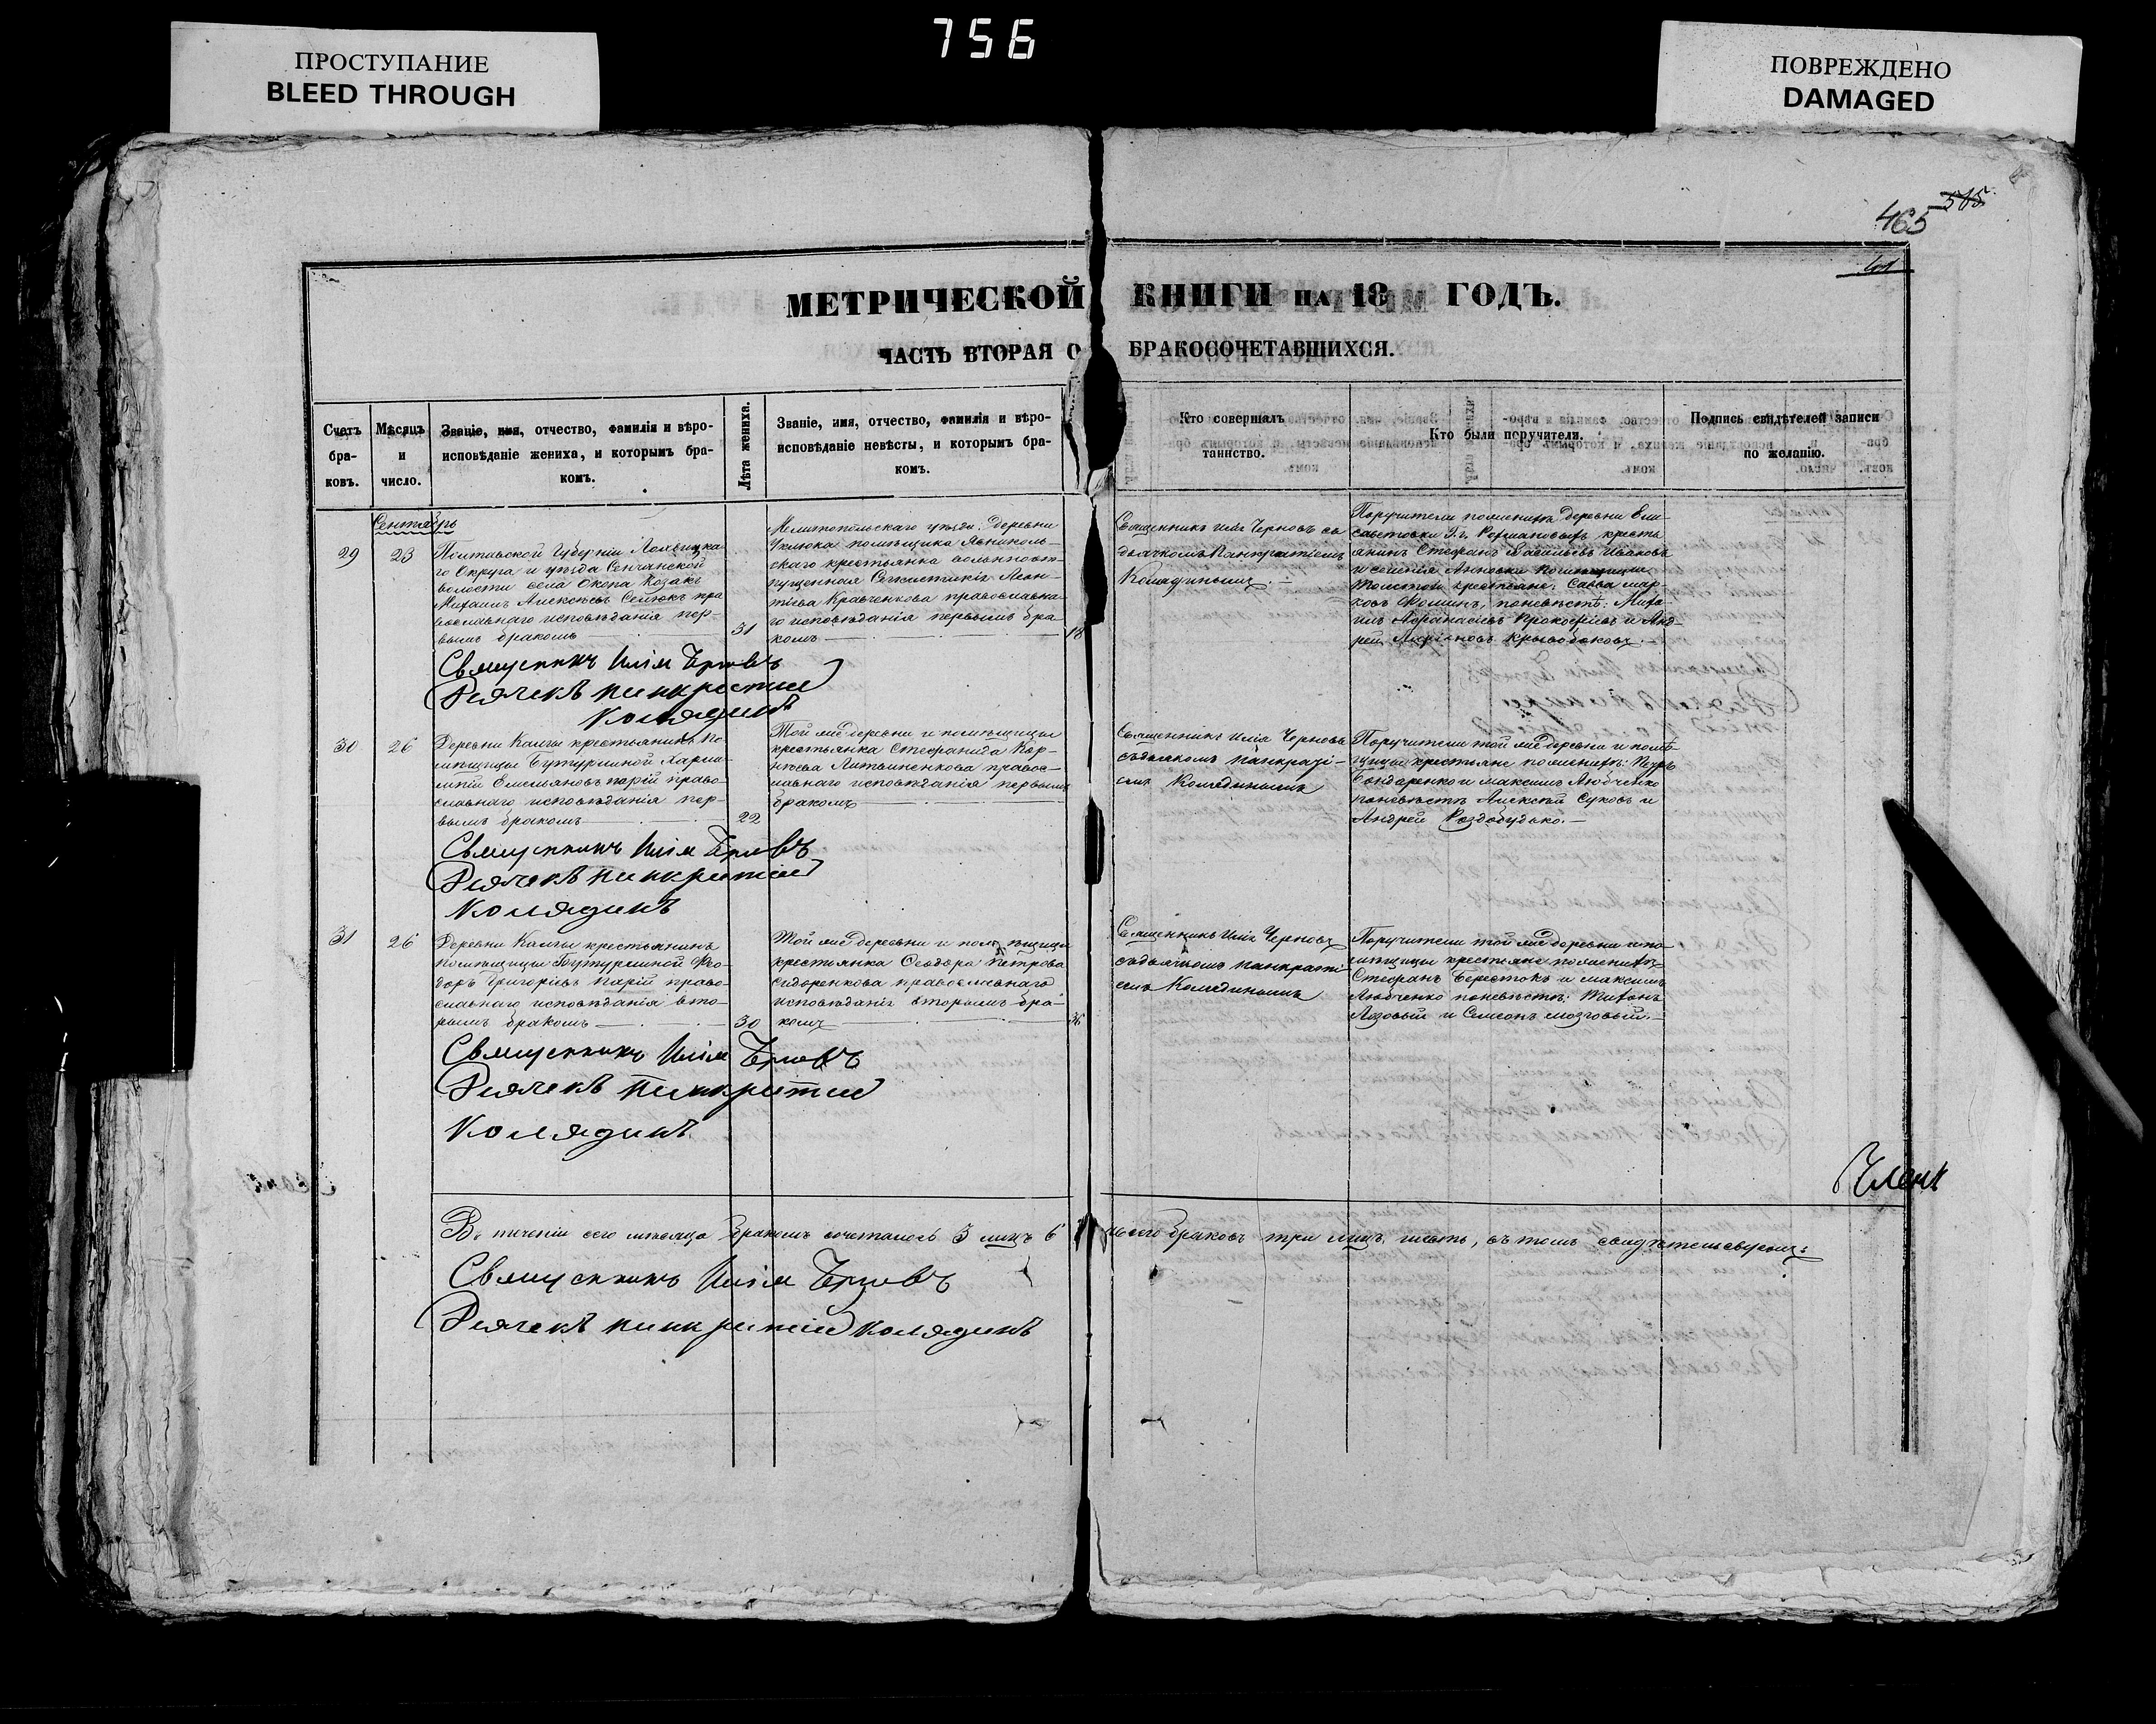 ПРОСТУПАНИЕ
BLEED THROUGH
756
ПОВРЕЖДЕНО
DAMAGED
465 505
МЕТРИЧЕСКОЙ КНИГИ НА 18 ГОДЪ.
ЧАСТЬ ВТОРАЯ О БРАКОСОЧЕТАВШИХСЯ.
Счетъ
бра-
ковъ.
Мѣсяцъ
и
число.
Званіе, имя, отчество, фамилія и вѣро-
исповѣданіе жениха, и которымъ бра-
комъ.
Лѣта жениха.
Званіе, имя, отчество, фамилія и вѣро-
исповѣданіе невѣсты, и которымъ бра-
комъ.
Кто совершалъ
таинство.
Кто были поручители.
Подпись свидѣтелей записи
по желанію.
Сентябрь
29
23
Полтавской Губерніи Лохвицка-
го Округа и уѣзда Сенчанской
волости села Окопа Козакъ
Михаилъ Алексѣевъ пра
вославнаго исповѣданія пер-
вымъ бракомъ
31
Мелитопольскаго уѣзда деревни
помѣщика
скаго крестьянка вольноот-
пущенная Леон-
тіева Кравченкова православна-
го исповѣданія первымъ бра
комъ
18
Священникъ Илія Черновъ съ
дьячкомъ Панкратіемъ
Колядинымъ.
Поручители по женихѣ деревни Ели-
саветовки кресть
янинъ Стефанъ Васильевъ Ивановъ
и селенія Анновки помѣщицы
Толстой крестьяне: Савва Мар-
ковъ Фоминъ, по невѣстѣ: Миха-
илъ Афанасіевъ Прокофіевъ и Анд-
рей Кривобоковъ.
Священникъ Илія Черновъ
Дьячекъ Панкратій
Колядинъ
30
26
Деревни Калги крестьянинъ по-
мѣщицы Бутурлиной Харла-
мпій Емельяновъ Парій право-
славнаго исповѣданія пер-
вымъ бракомъ
22
Той же деревни и помѣщицы
крестьянка Стефанида Кор-
нѣева Литвиненкова правос-
лавнаго исповѣданія первымъ
бракомъ
Священникъ Илія Черновъ
съ дьячкомъ Панкраті-
емъ Колядинымъ
Поручители той же деревни и помѣ-
щицы крестьяне по женихѣ: Петръ
Бондаренко и Максимъ Любченко
по невѣстѣ Алексѣй Суковъ и
Андрей Роздобудько.
Священникъ Илія Черновъ
Дьячекъ Панкратій
Колядинъ
31
26
Деревни Калги крестьянинъ
помѣщицы Бутурлиной Фео-
доръ Григоріевъ Парій право-
славнаго исповѣданія вто-
рымъ бракомъ
30
Той же деревни и помѣщицы
крестьянка Феодора Петрова
Сидоренкова православнаго
исповѣданія вторымъ бра-
комъ
36
Священникъ Илія Черновъ
съ дьячкомъ Панкраті-
емъ Колядинымъ
Поручители той же деревни и по-
мѣщицы крестьяне по женихѣ
Стефанъ Берестокъ и Максимъ
Любченко по невѣстѣ: Тихонъ
Лозовый и Семенъ Мозговый.
Священникъ Илія Черновъ
Дьячекъ Панкратій
Колядинъ
Членъ
Въ теченіи сего мѣсяца бракомъ сочеталось 3 лицъ 6 всего браковъ три лицъ шесть, въ томъ свидѣтельствуемъ:
Священникъ Илія Черновъ
Дьячекъ Панкратій Колядинъ